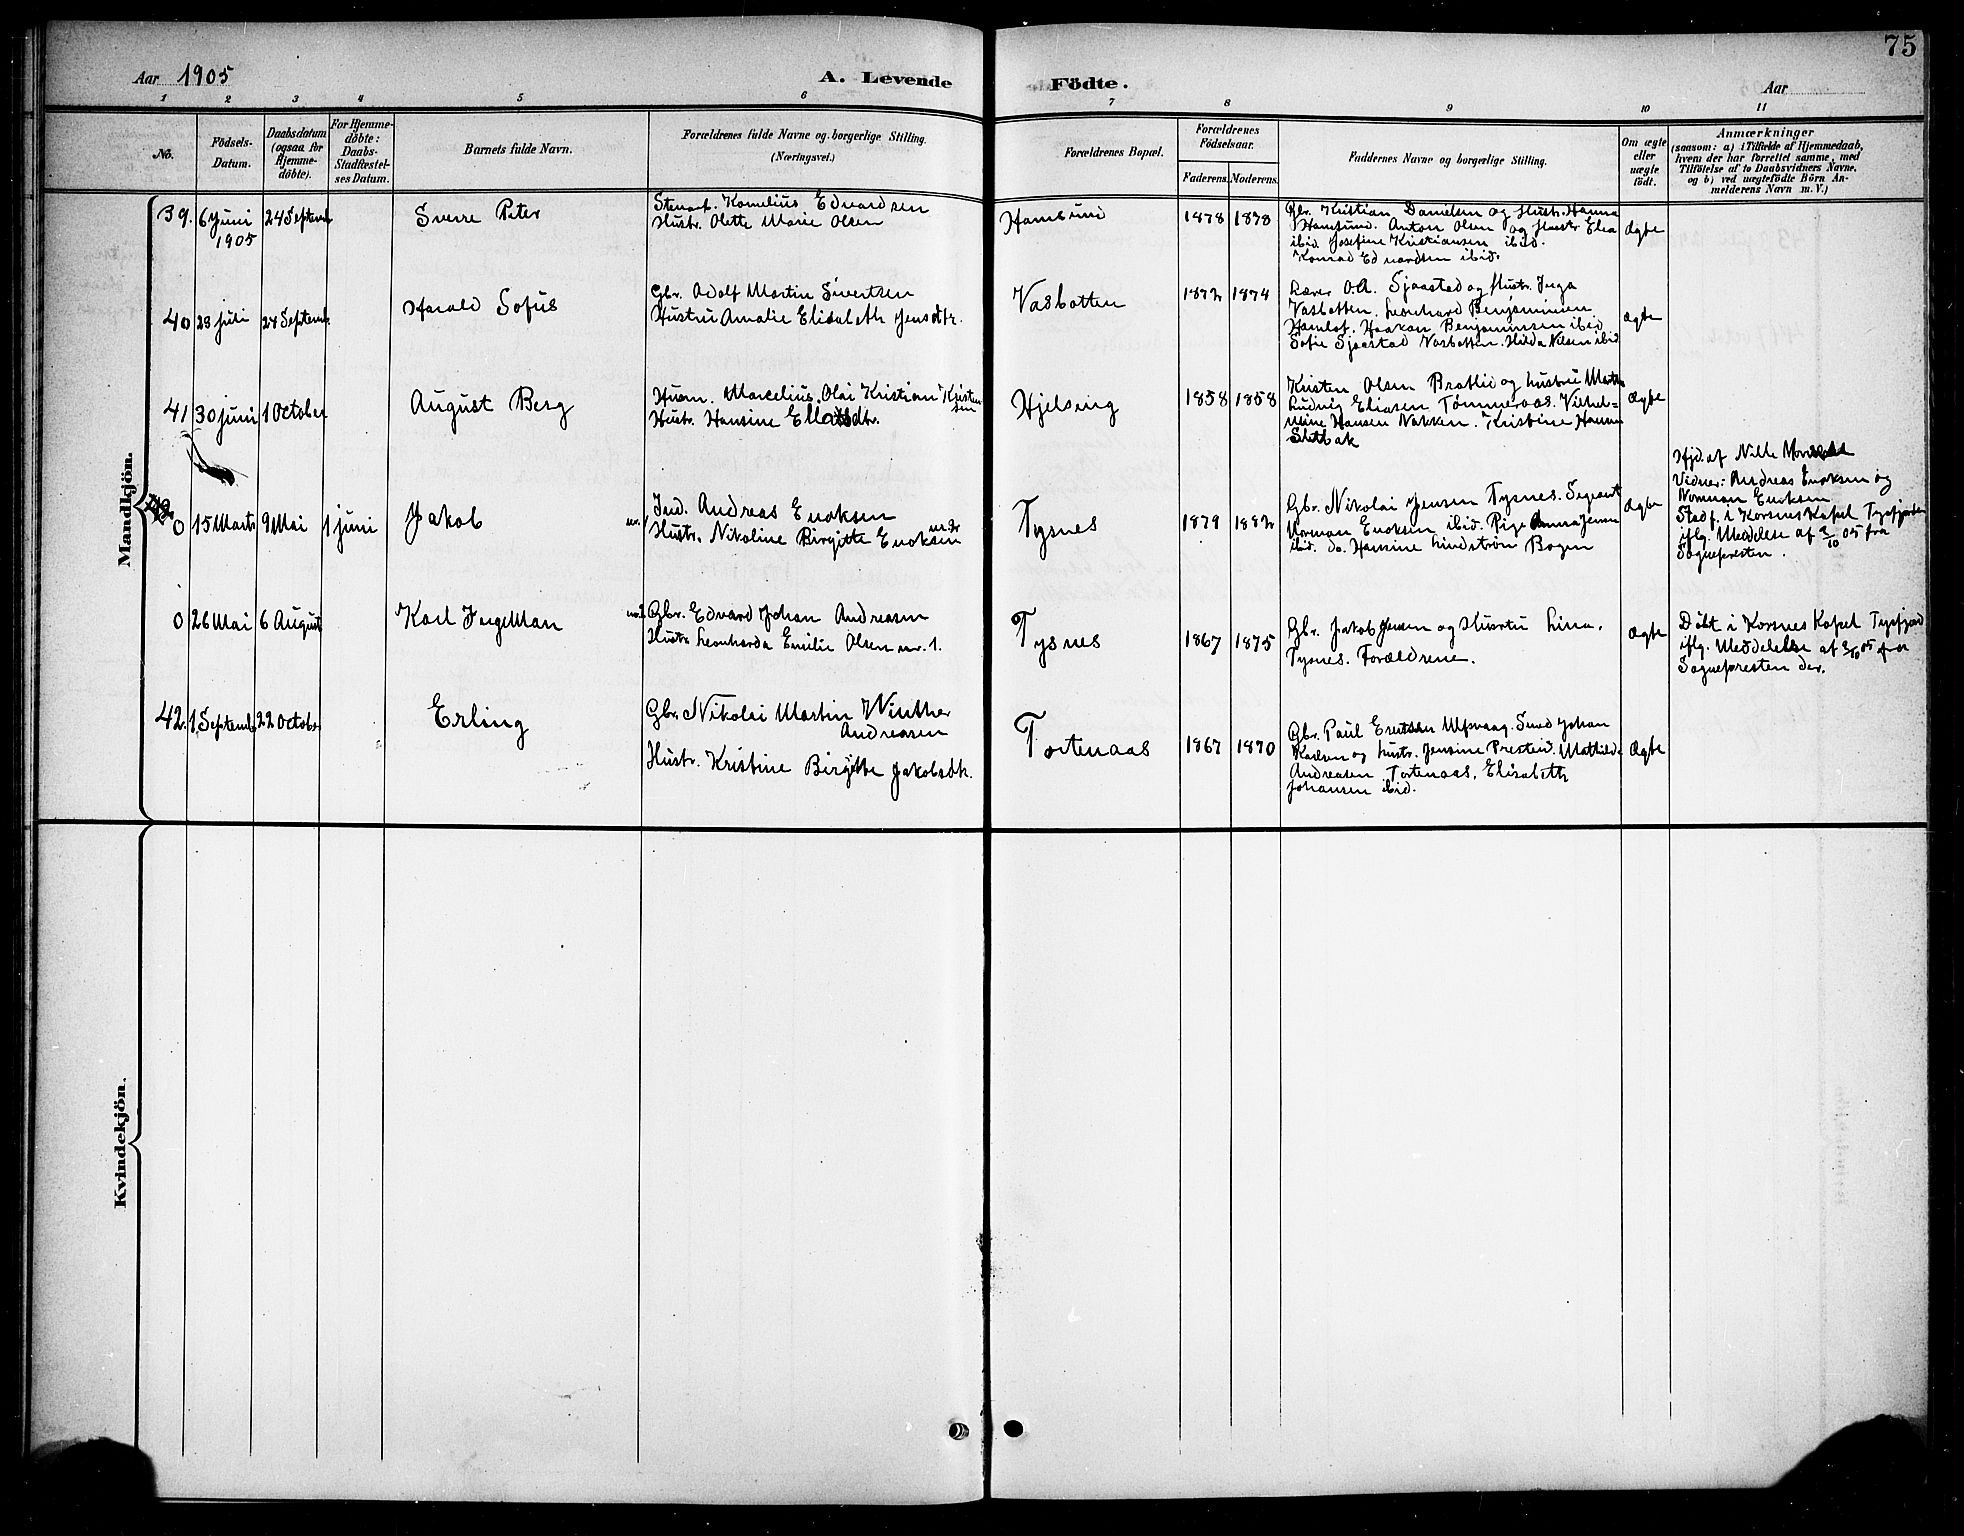 75
Aar 1905
A. Levende Födte.
Aar
1 2 3 4 5 6 7 8 9 10 11
No.
Födsels-
Datum.
Daabsdatum
(ogsaa for
Hjemme-
döbte).
For Hjemme-
döbte:
Daabs-
Stadfæstel-
ses Datum.
Barnets fulde Navn.
Forældrenes fulde Navne og borgerlige Stilling.
(Næringsvei.)
Forældrenes Bopæl.
Forældrenes
Födselsaar.
Faderens. Moderens.
Faddernes Navne og borgerlige Stilling.
Om ægte
eller
uægte
födt.
Anmærkninger
(saasom: a) i Tilfælde af Hjemmedaab,
hvem der har forrettet samme, med
Tilföielse af to Daabsvidners Navne,
og b) ved uægtefödte Börn An-
melderens Navn m. V.)
Mandkjön.
39. 6 Juni
1905
24 Septemb
Sverre Peter
Kornelius Edvardsen
Hustr. Olette Marie Olsen
Hamsund
1878 1878
Gbr. Kristian Danielsen og Hustr. Hanna
Hamsund. Anton Olsen og Hustr. Elea
ibid. Josefine Kristiansen ibid.
Konrad Edvardsen ibid.
Ægte
40 23 Juli 24 Septemb.
Harald Sofus
Gbr. Adolf Martin Sivertsen
Hustru Amalie Elisabeth Jensdtr.
Vasbotten
1872 1874
Lærer O.A. Sjaastad og Hustr. Inga
Vasbotten. Leonhard Benjaminsen
Hamlot. Haakon Benjaminsen ibid
Sofie Sjaastad Vasbotten. Hilda Nilsen ibid
Ægte
41 30 Juni 1 October
August Berg
Husm. Marcelius Olai Kristian Kristen
sen
Hustr. Hansine
Hjelseng
1858 1858
Kristen Olsen Bratlie og hustru
Ludvig Eliasen Tømmeraas. Vilhel-
mine Hansen Nakken. Kristine
Ægte
0 15 Marts 9 Mai 1 juni
Jakob
Ind. Andreas Enoksen
nr. 1
Hustr. Nikoline Birgitte Enoksen
nr 2
Tysnes
1879 1882
Gbr. Nikolai Jensen Tysnes.
Norman Enoksen ibid. Pige Anna Jensen
ibid. do. Hansine Lindstrøm Bogen
Ægte
Hjd. af Nille
Vidner: Andreas Enoksen og
Norman Enoksen
Stadf. i Korsnes Kapel Tysfjorden
iflg. Meddelese af 2/10 05 fra
Sognepresten.
0 26 Mai 6 August
Karl IngeMan
Gbr. Edvard Johan Andreasen
Hustr Leonharda Emilie Olsen nr. 1.
Tysnes
1867 1875
Gbr. Jakob Jensen og Hustru Lina.
Tysnes. Forældrene.
Ægte
Døbt i Korsnes Kapel Tysfjord
iflg. Meddelelse af 2/10 05 fra
Sognepresten der.
42. 1 Septemb 22 Octobr
Erling
Gbr. Nikolai Martin Winther
Andreasen
Hustr. Kristine Birgitte Jakobsdtr.
Tortenaas
1867 1870
Gbr. Paul Ulvsvaag. Johan
Karlsen og hustr. Jensine Presteid. Mathilde
Andreasen. Tortenaas, Elisabeth
Johansen ibid.
Ægte
Kvindekjön.